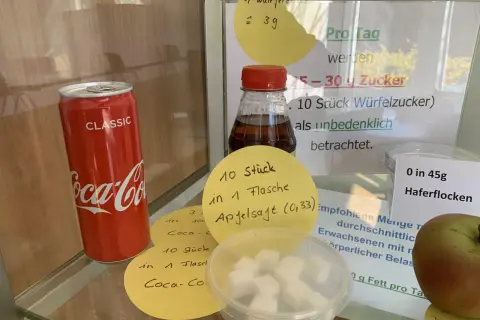 = 3g
Pro Tag
werden
15 – 30 g Zucker
10 Stück Würfelzucker)
als unbedenklich
betrachtet.
CLASSIC
Coca-Co
10 Stück
in 1 Flasche
Apfelsaft (0,33)
Coca-
10 Stück
in 1 Flasche
Coca-Co
0 in 45g
Haferflocken
Empfohlene Menge
durchschnittlic
Erwachsenen mit
körperlicher Belas
g Fett pro Tag